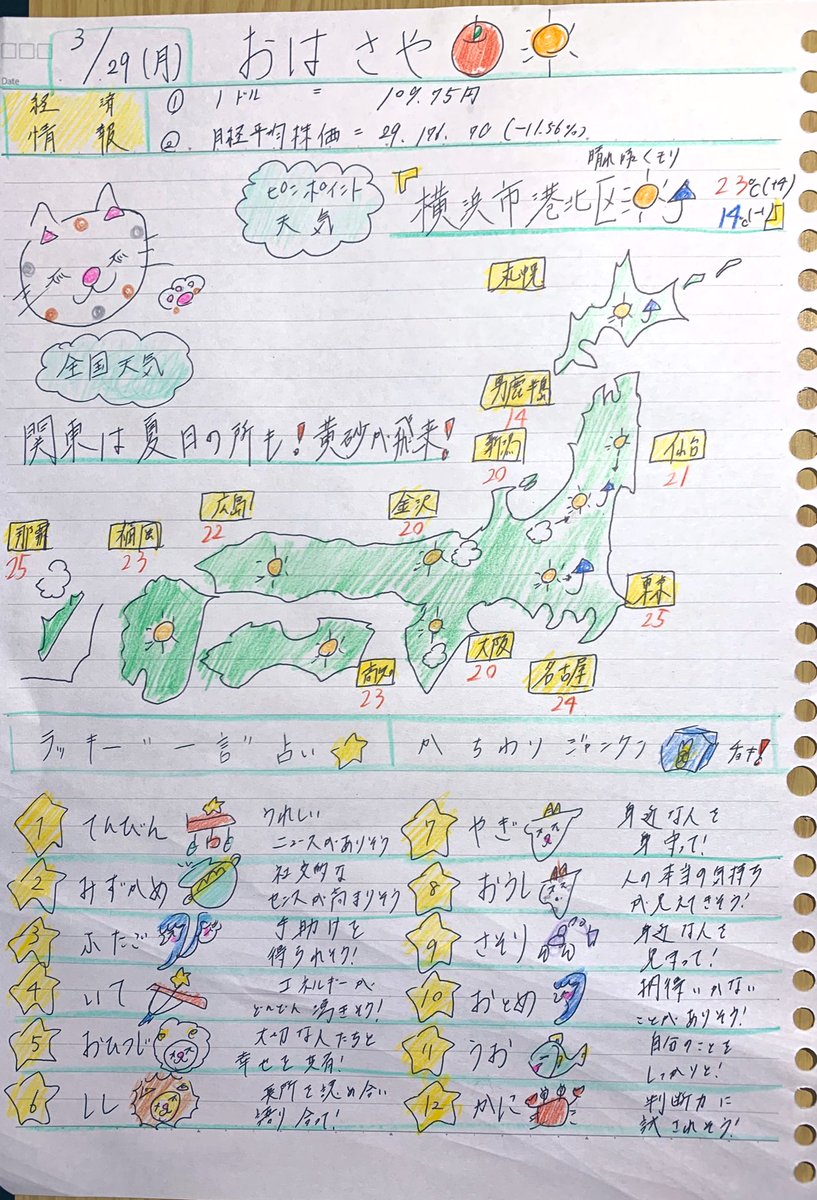 Date
3/29(月) おはさや
経済情報
① 1ドル = 109.75円
② 日経平均株価 = 29.171.70 (-11.56%)
ピンポイント
天気
晴れ時々くもり
横浜市港北区 23℃(+4)
14℃(-1)
全国天気
関東は夏日の所も!黄砂が飛来!
札幌
男鹿半島
14
新潟
20
仙台
21
金沢
20
広島
22
福岡
23
那覇
25
東京
25
大阪
20
名古屋
24
高知
23
ラッキー"一言"占い
かちわりジャンケン チョキ!
1 てんびん うれしい
ニュースがありそう
2 みずがめ 社交的な
センスが高まりそう
3 ふたご 手助けを
得られそう!
4 いて エネルギーが
どんどん湧きそう!
5 おひつじ 大切な人たちと
幸せを共有!
6 しし 長所を認め合い
語り合って!
7 やぎ 身近な人を
身守って!
8 おうし 人の本当の気持ち
が見えてきそう!
9 さそり 身近な人を
見守って!
10 おとめ 期待いがない
ことがありそう!
11 うお 自分のことを
しっかりと!
12 かに 判断力に
試されそう!